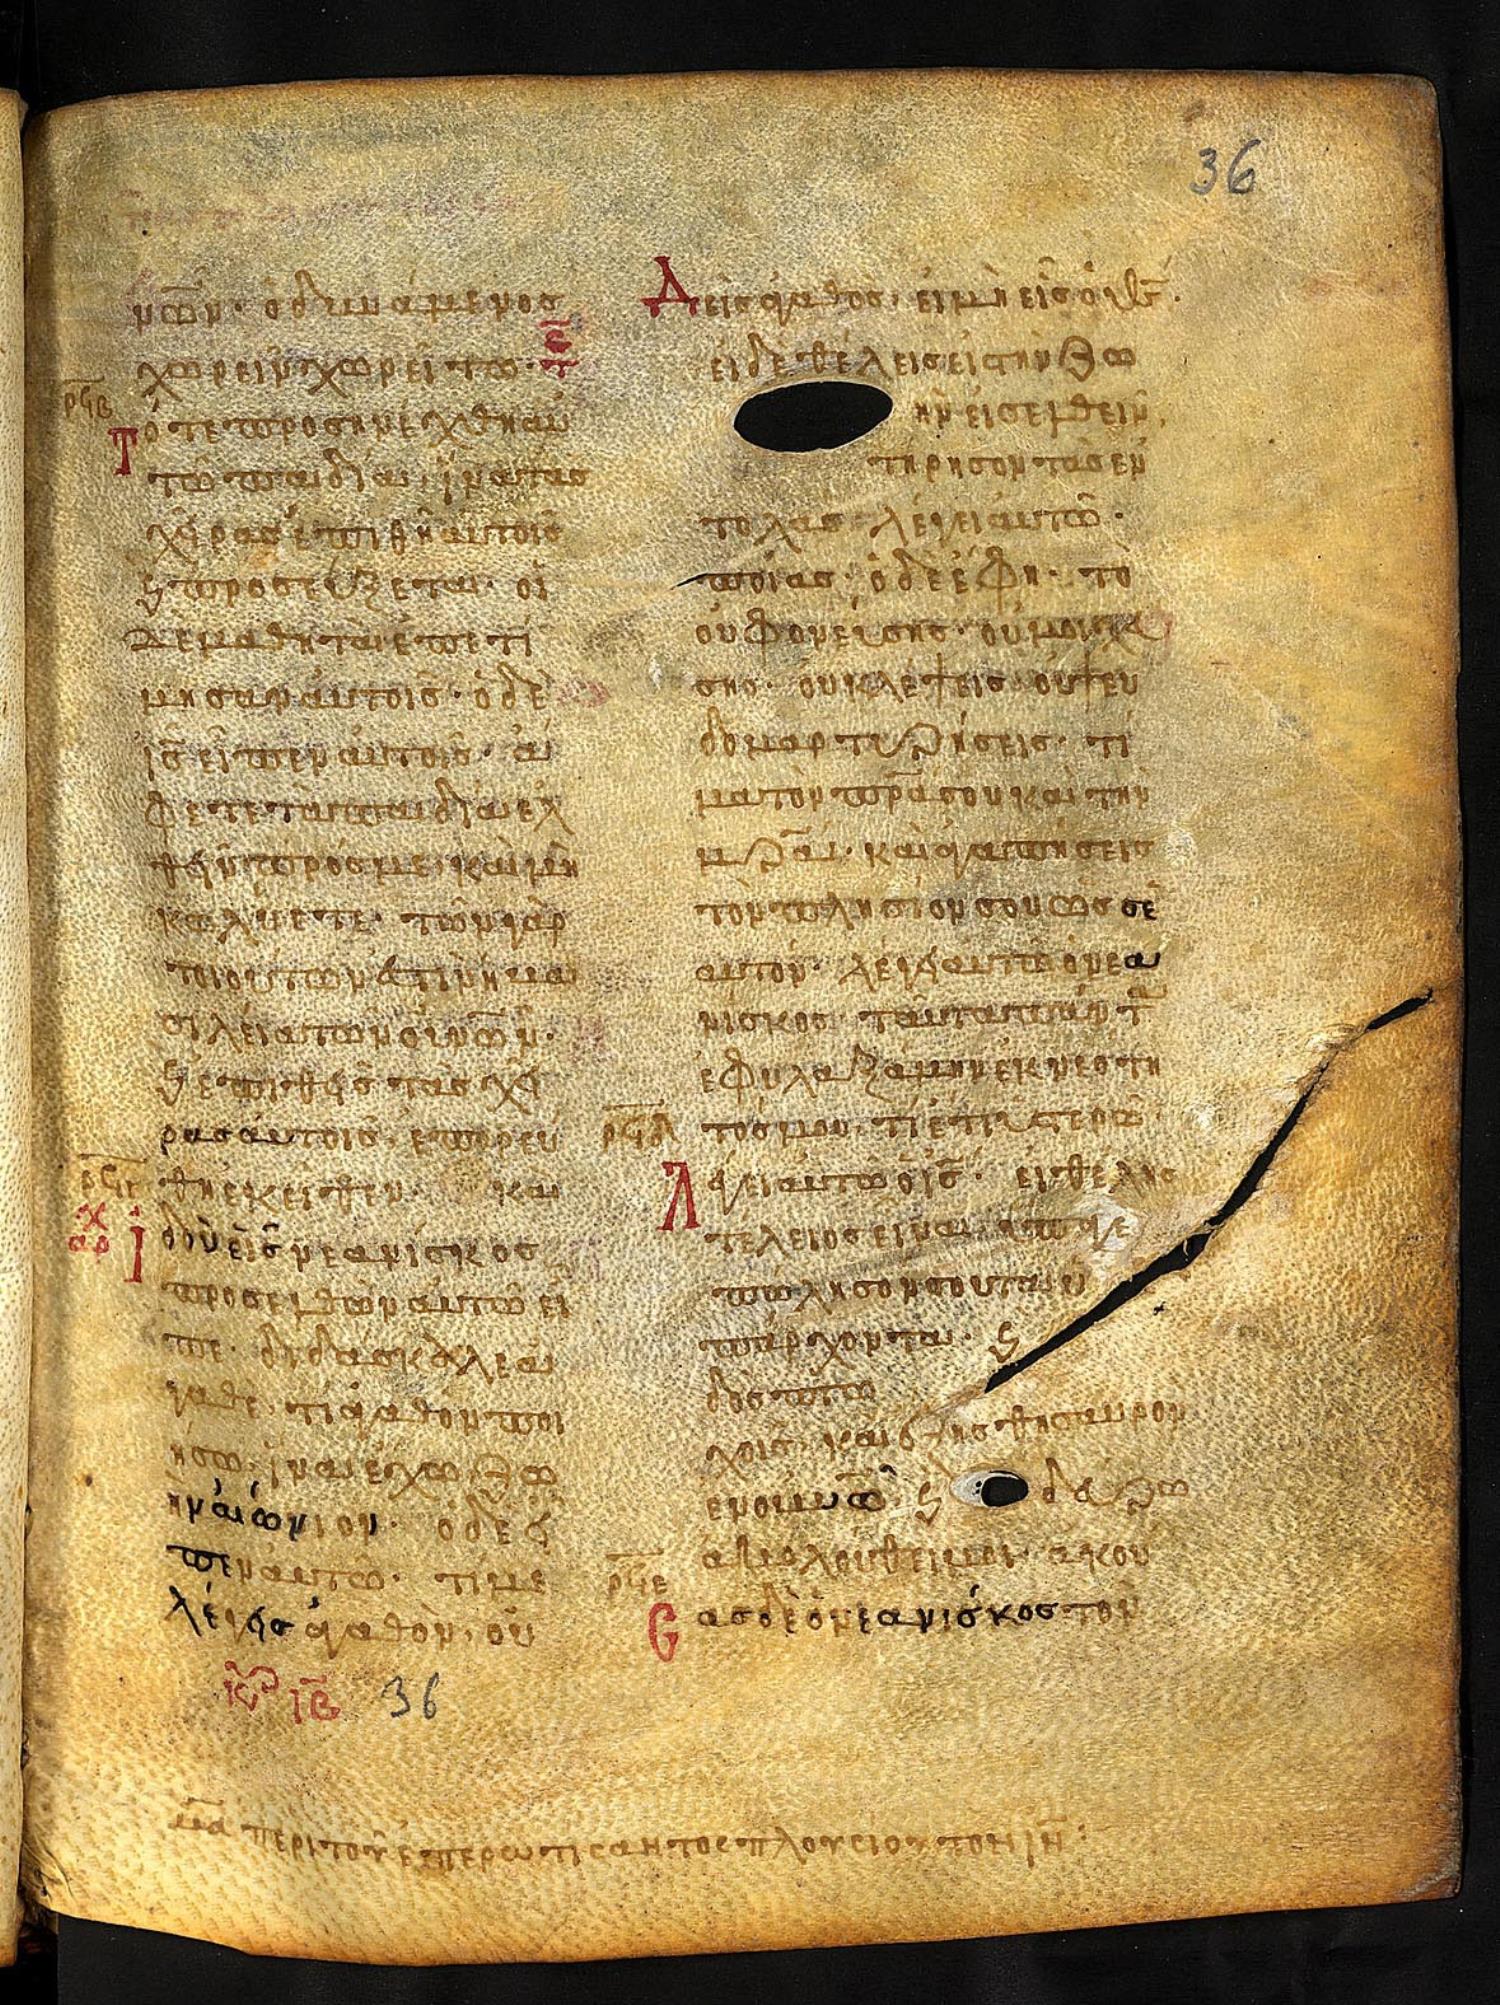 36
νῶν· ὁ δυνάμενος
χωρεῖν χωρείτω·
ρϟβ
Τότε προσηνέχθη αυ
τῶ παιδία, ἵνα τὰς
χεῖρας ἐπιθῆ αυτοῖς
ϗ προσεύξεται· οἱ
δε μαθηταὶ ἐπετί
μησαν αὐτοῖς· ὁ δὲ
ις̅ εἶπεν αὐτοῖς· ἄ
φετε τὰ παιδία ἐλ
θεῖν πρός με, καὶ μὴ
κωλύετε· τῶν γὰρ
τοιούτων ἐστιν ἡ βα
σιλεία τῶν οὐνῶν·
ϗ ἐπιθεὶς τὰς χεῖ
ρας αὐτοῖς, ἐπορεύ
ρϟγ
θη ἐκεῖθεν· και
ἰδοὺ εἷς νεανίσκος
προσελθὼν αυτῶ εἶ
πε· διδάσκαλε ἀ
γαθὲ, τί ἀγαθὸν ποι
ήσω, ἵνα ἔχω ζω
ὴν αἰώνιον· ὁ δὲ εἶ
πεν αυτῶ· τί με
λέγεις ἀγαθὸν, οὐ
ιβ 36
Δεὶς ἀγαθὸς, εἰ μὴ εἷς ὁ θς̅·
εἰ δὲ θέλεις εἰς την ζω
ὴν εἰσελθεῖν,
τήρησον τὰς ἐν
τολάς· λέγει αυτῶ·
ποίας· ὁ δὲ ἔφη· τὸ
οὐ φονεύσης· οὐ μοιχεύ
σης· οὐ κλέψεις· οὐ ψευ
δομαρτυρήσεις· τί
μα τὸν πρα̅ σου και τὴν
μρα̅· καὶ ἀγαπήσεις
τὸν πλησίον σου ὡς σε
αυτόν· λέγει αυτῶ ὁ νεα
νίσκος· ταῦτα πάντα
ἐφυλαξάμην ἐκ νεότη
ρϟδ
τός μου, τί ἔτι ὑστερῶ·
Λέγει αυτῶ ὁ ις̅· εἰ θέλεις
τέλειος εἶναι, ὕπαγε
πώλησόν σου τὰ ὑ
πάρχοντα· ϗ
δὸς πτω
χοῖς, καὶ ἕξεις θησαυρὸν
ἐν οὐνῶ· ϗ δεῦρο
ακολούθει μοι· ακού
ρϟε
σας δὲ ὁ νεανίσκος τὸν
μα περὶ τοῦ ἐπερωτίσαντος πλουσίου τὸν ιν̅: